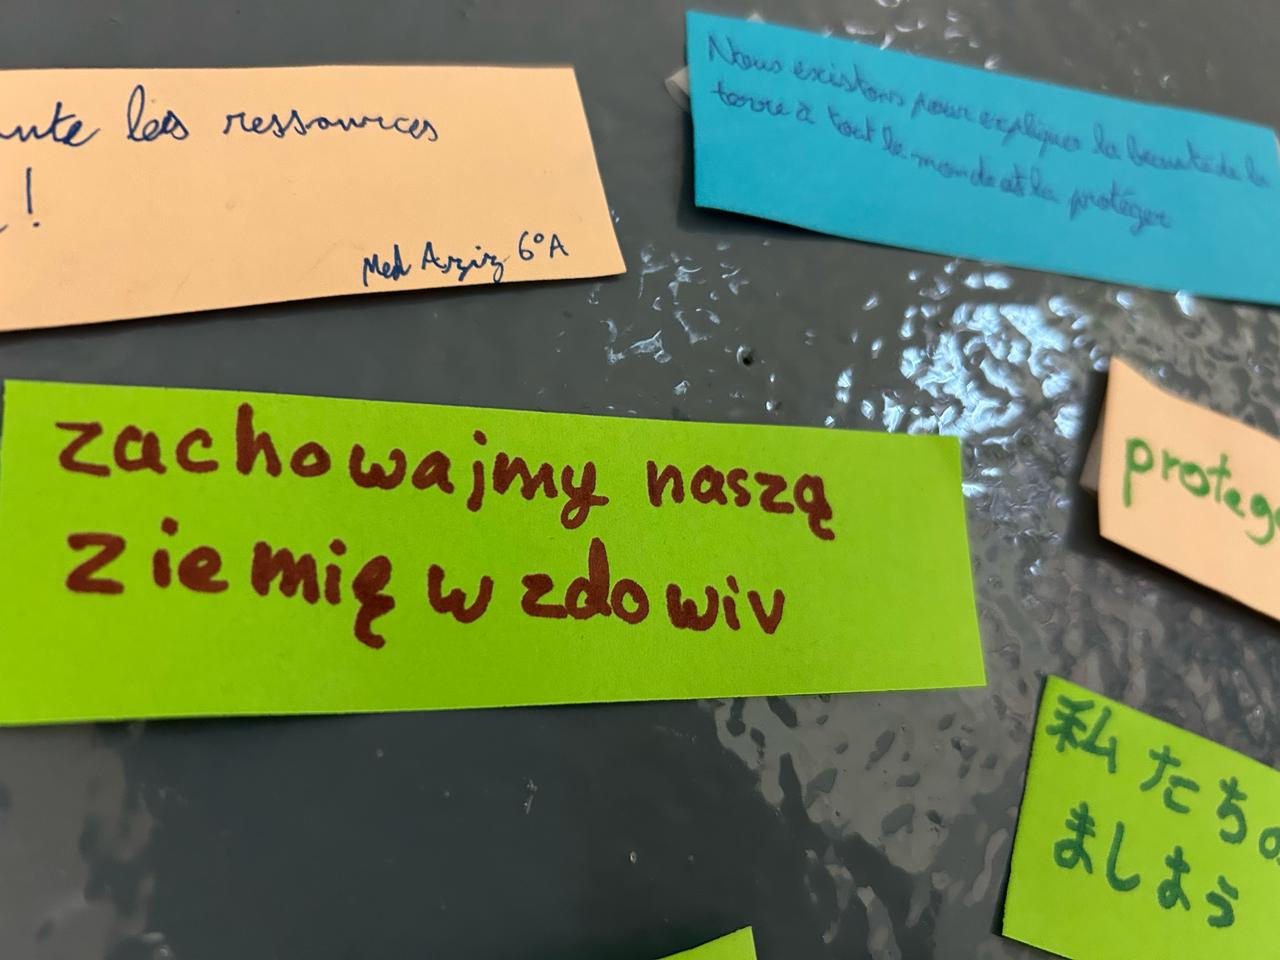 les ressources
!
Med Arziz 6°A
Nous existons pour expliquer la beauté de la
terre à tout le monde et la protéger
zachowajmy naszą
ziemię w zdowiv
proteg
私たちの
ましょう